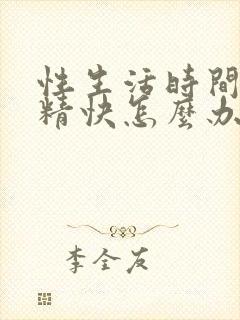 性生活時間
精快怎麼办
李全友